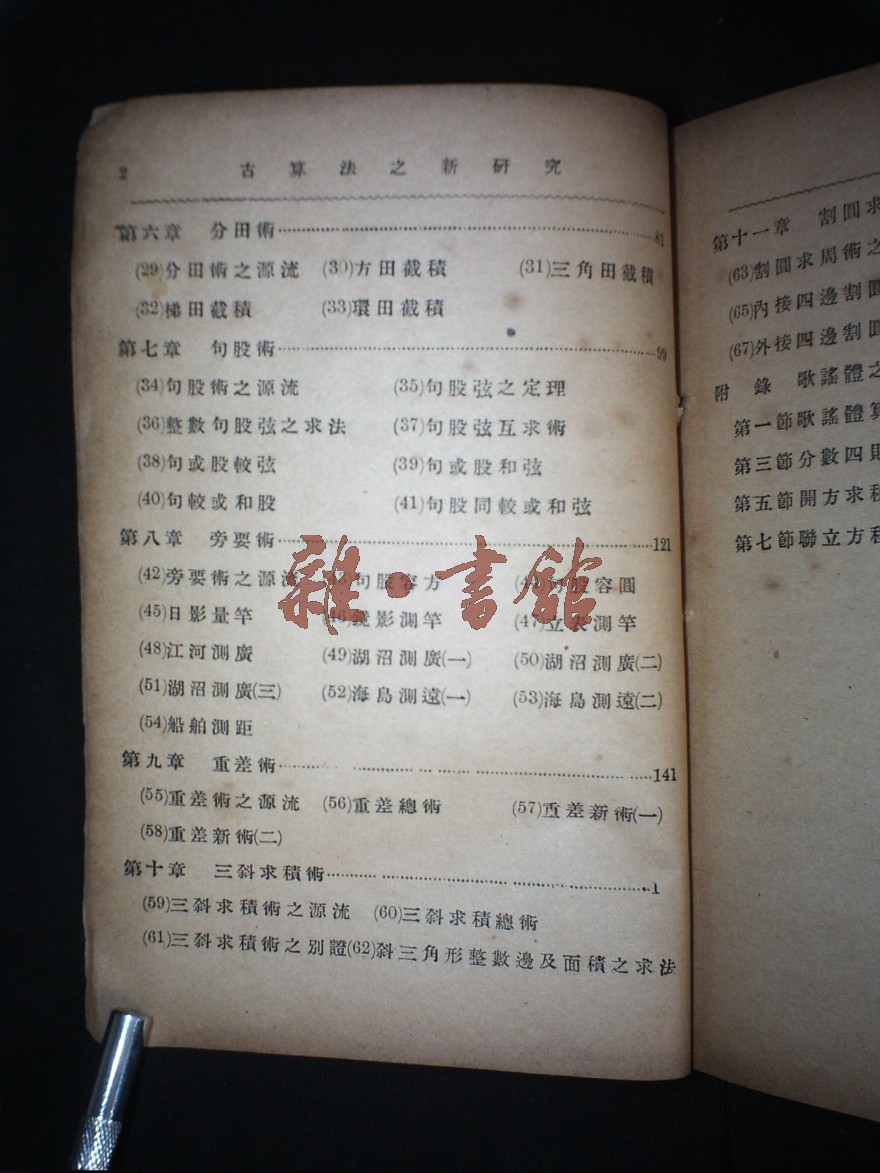 2 古算法之新研究
第六章 分田術……81
(29)分田術之源流 (30)方田截積 (31)三角田截積
(32)梯田截積 (33)環田截積
第七章 句股術……99
(34)句股術之源流 (35)句股弦之定理
(36)整數句股弦之求法 (37)句股弦互求術
(38)句或股較弦 (39)句或股和弦
(40)句較或和股 (41)句股同較或和弦
第八章 旁要術……121
(42)旁要術之源流 句股容方 句股容圓
(45)日影量竿 (46)鏡影測竿 (47)立表測竿
(48)江河測廣 (49)湖沼測廣(一) (50)湖沼測廣(二)
(51)湖沼測廣(三) (52)海島測遠(一) (53)海島測遠(二)
(54)船舶測距
第九章 重差術……141
(55)重差術之源流 (56)重差總術 (57)重差新術(一)
(58)重差新術(二)
第十章 三斜求積術……1
(59)三斜求積術之源流 (60)三斜求積總術
(61)三斜求積術之別證(62)斜三角形整數邊及面積之求法
雜·書館
第十一章 割圓求
(63)割圓求周術之
(65)內接四邊割圓
(67)外接四邊割圓
附錄 歌謠體之
第一節歌謠體算
第三節分數四則
第五節開方求積
第七節聯立方程